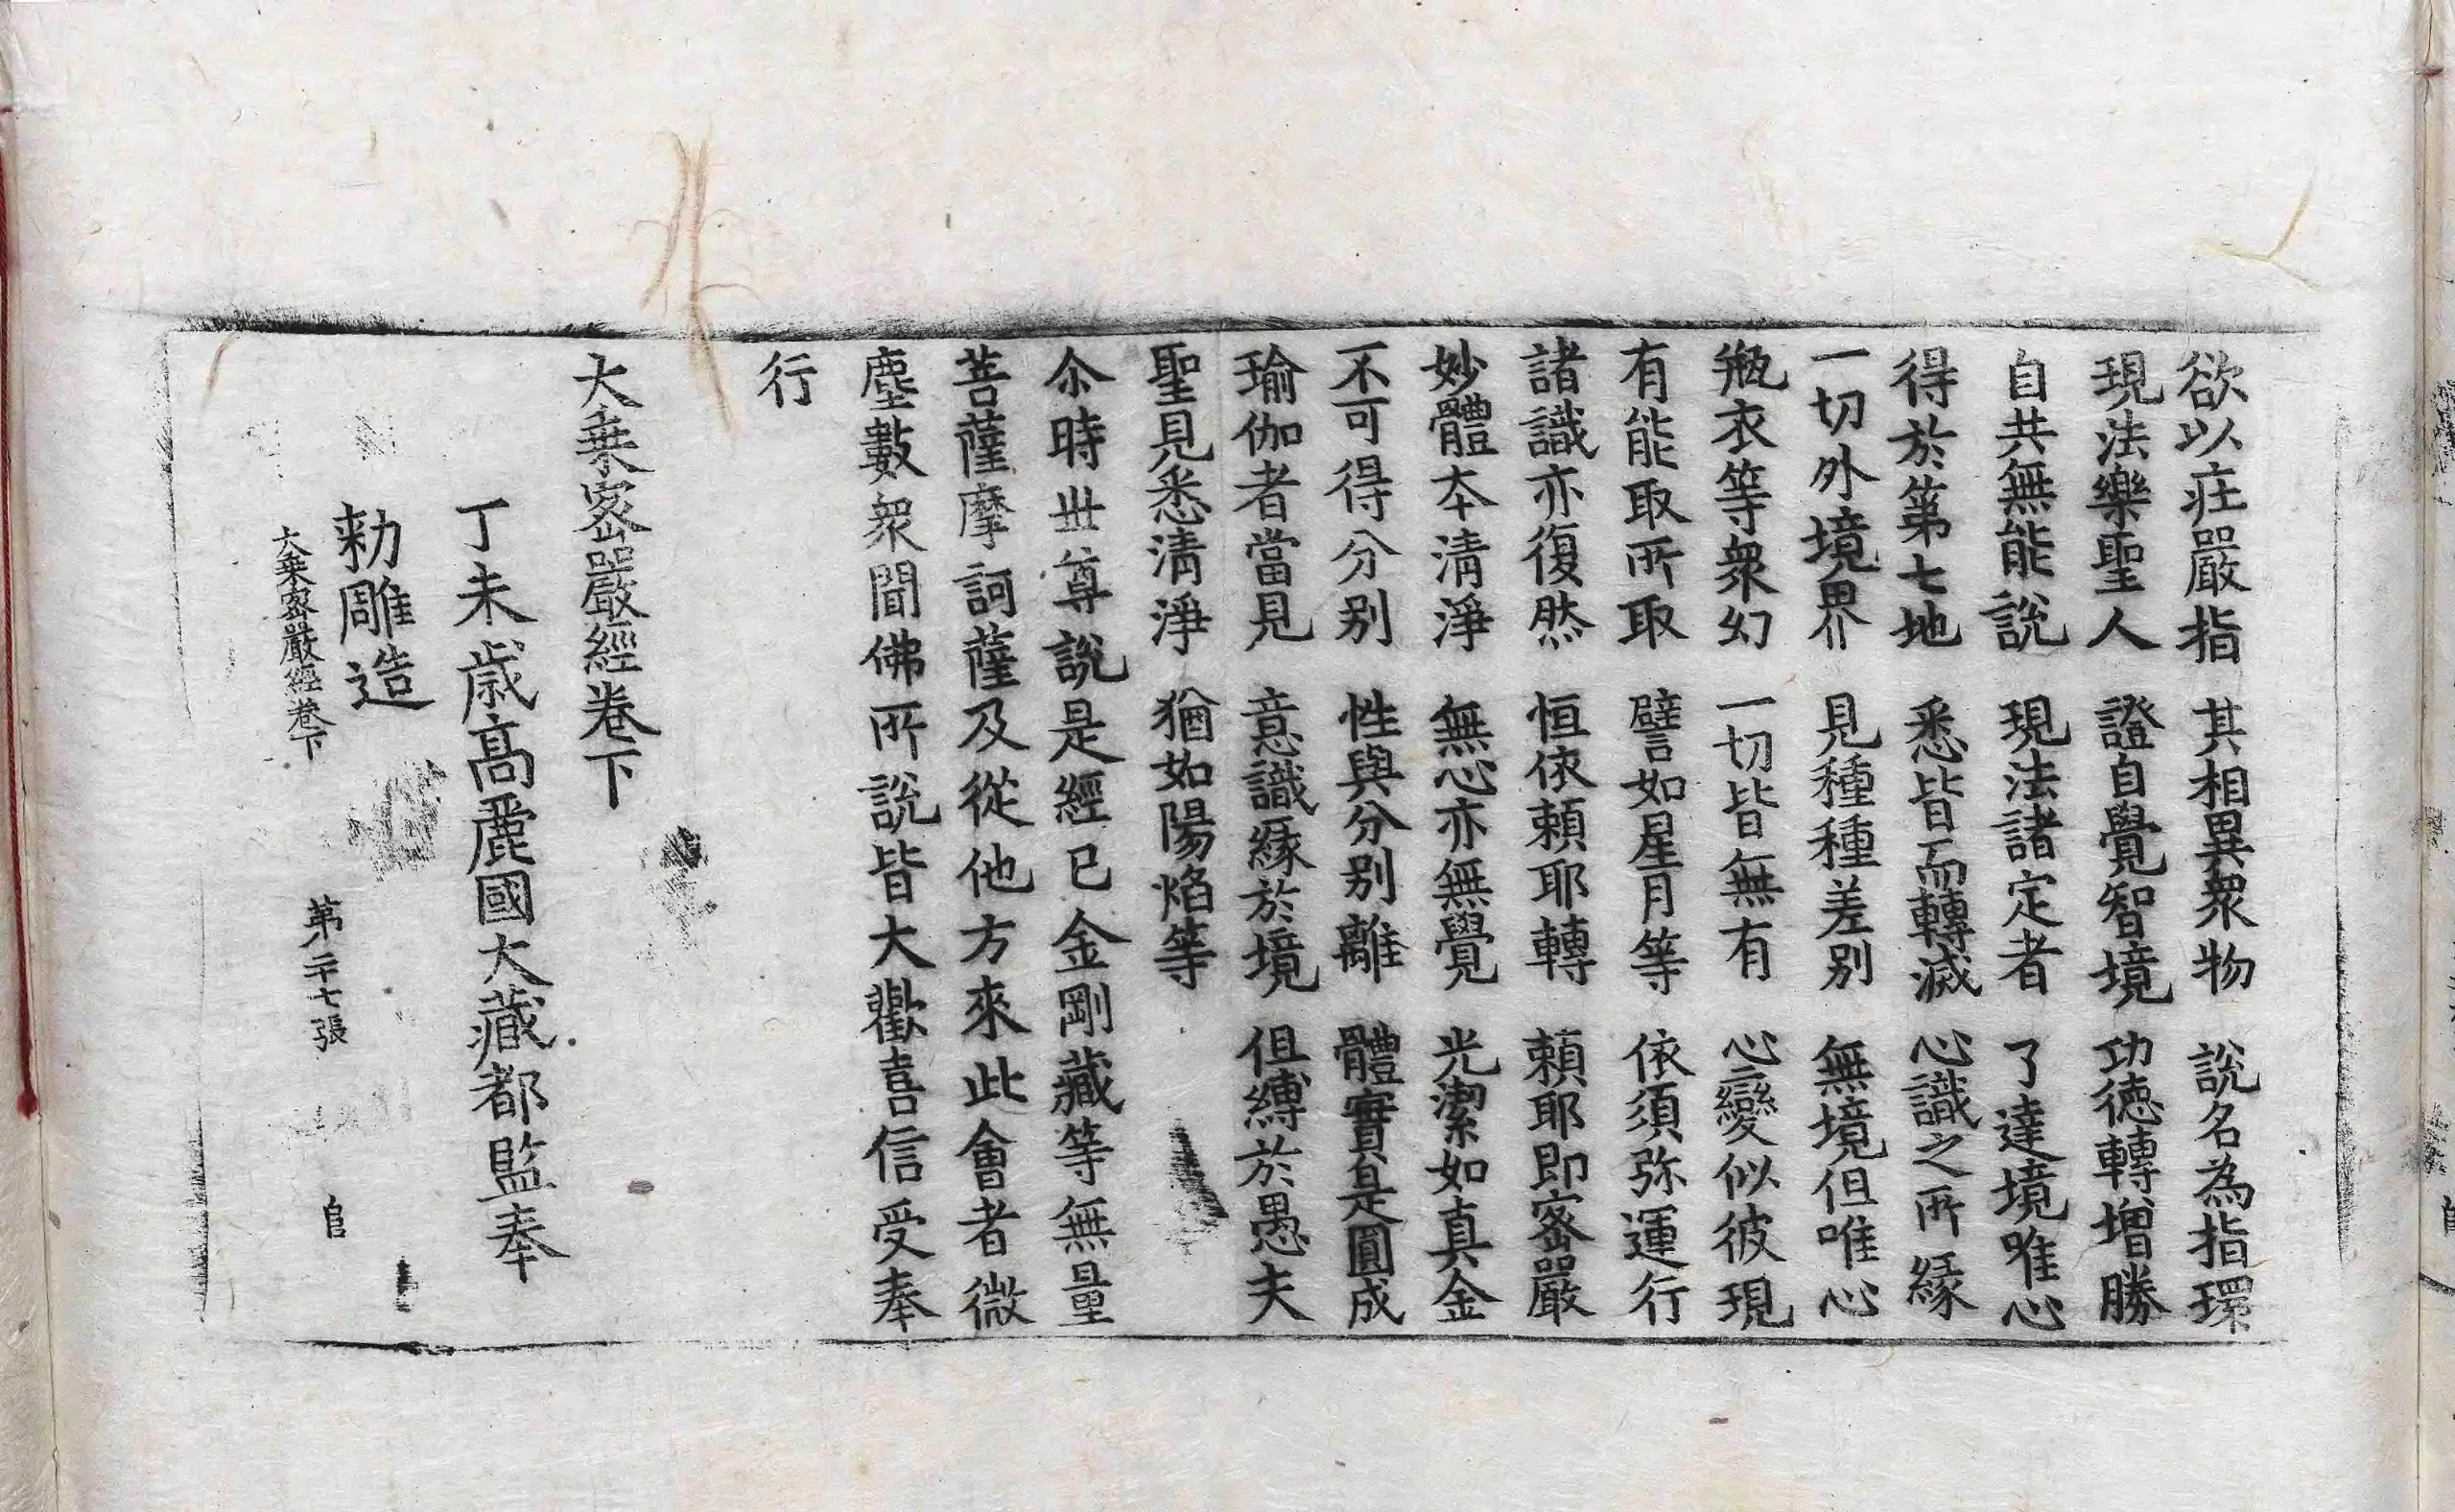 欲以庄嚴指 其相異衆物 說名為指環
現法樂聖人 證自覺智境 功德轉增勝
自共無能說 現法諸定者 了達境唯心
得於第七地 悉皆而轉滅 心識之所緣
一切外境界 見種種差別 無境但唯心
瓶衣等衆幻 一切皆無有 心變似彼現
有能取所取 譬如星月等 依須弥運行
諸識亦復然 恒依賴耶轉 賴耶即密嚴
妙體本清淨 無心亦無覺 光潔如真金
不可得分別 性與分別離 體實是圓成
瑜伽者當見 意識緣於境 但縛於愚夫
聖見悉清淨 猶如陽焰等
尒時世尊說是經已金剛藏等無量
菩薩摩訶薩及從他方來此會者微
塵數衆聞佛所說皆大歡喜信受奉
行
大乘密嚴經卷下
丁未歲高麗國大藏都監奉
勑雕造
大乘密嚴經卷下 第二十七張 自